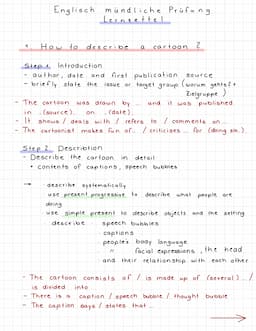 Englisch mündliche Prüfung
Lernzettel
1. How to describe a cartoon ?
Step 1 Introduction
- author, date and first publication source
- briefly state the issue or target group (worum geht's? +
Zielgruppe)
- The cartoon was drawn by ... and it was published
in ..(source).. on ..(date).
- It shows / deals with / refers to / comments on...
- The cartoonist makes fun of... / criticises ... for (doing sth.).
Step 2 Describtion
- Describe the cartoon in detail:
• contents of captions, speech bubbles
→ describe systematically
use present progressive to describe what people are
doing
use simple present to describe objects and the setting
describe : speech bubbles
captions
peoples body language
" facial expressions, the head
and their relationship with each other
- The cartoon consists of / is made up of (several)... /
is divided into ...
- There is a caption / speech bubble / thought bubble
- The caption says / states that ...